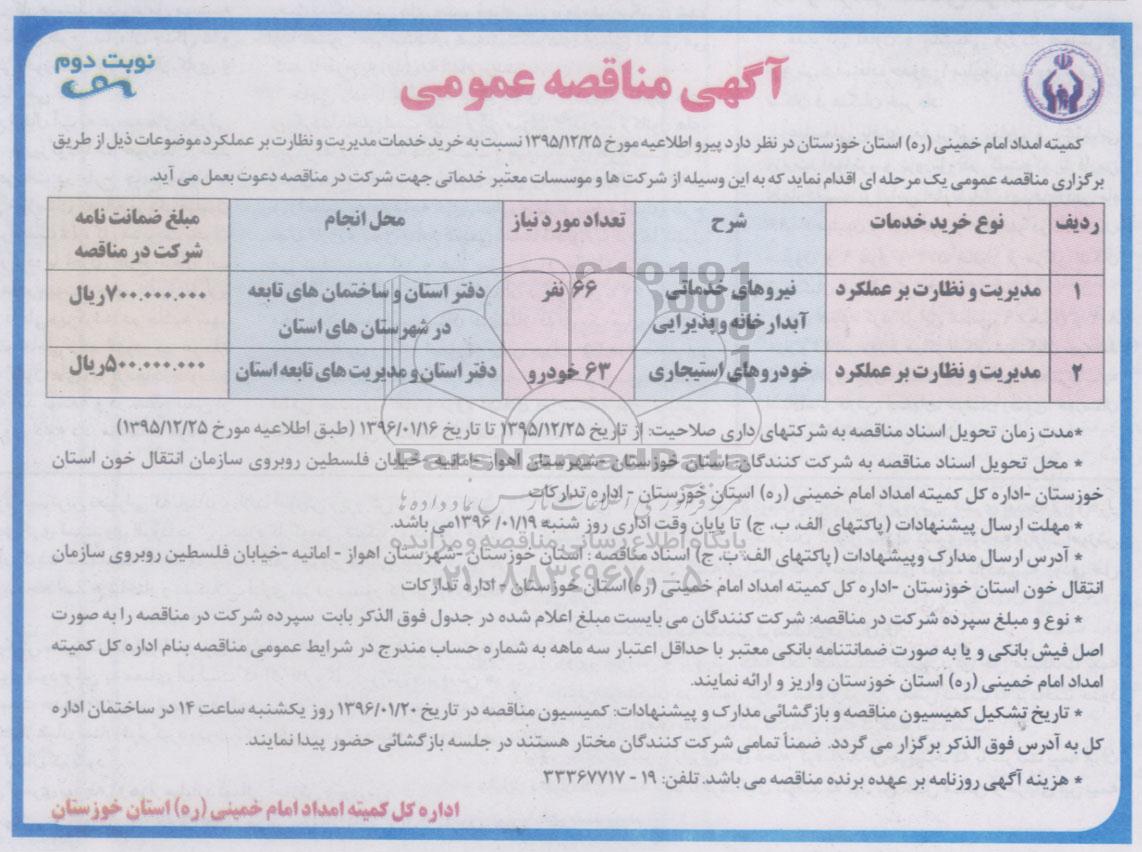 آگهی مناقصه عمومی
نوبت دوم
کمیته امداد امام خمینی (ره) استان خوزستان در نظر دارد پیرو اطلاعیه مورخ ۱۳۹۵/۱۲/۲۵ نسبت به خرید خدمات مدیریت و نظارت بر عملکرد موضوعات ذیل از طریق
برگزاری مناقصه عمومی یک مرحله ای اقدام نماید که به این وسیله از شرکت ها و موسسات معتبر خدماتی جهت شرکت در مناقصه دعوت بعمل می آید.
ردیف نوع خرید خدمات شرح تعداد مورد نیاز محل انجام مبلغ ضمانت نامه
شرکت در مناقصه
۱ مدیریت و نظارت بر عملکرد نیروهای خدماتی ۶۶ نفر دفتر استان و ساختمان های تابعه ۷۰۰.۰۰۰.۰۰۰ریال
آبدارخانه و پذیرایی در شهرستان های استان
۲ مدیریت و نظارت بر عملکرد خودروهای استیجاری ۶۳ خودرو دفتر استان و مدیریت های تابعه استان ۵۰۰.۰۰۰.۰۰۰ریال
*مدت زمان تحویل اسناد مناقصه به شرکتهای داری صلاحیت: از تاریخ ۱۳۹۵/۱۲/۲۵ تا تاریخ ۱۳۹۶/۰۱/۱۶ (طبق اطلاعیه مورخ ۱۳۹۵/۱۲/۲۵)
* محل تحویل اسناد مناقصه به شرکت کنندگان: استان خوزستان -شهرستان اهواز- امانیه -خیابان فلسطین روبروی سازمان انتقال خون استان
خوزستان -اداره کل کمیته امداد امام خمینی (ره) استان خوزستان - اداره تدارکات
* مهلت ارسال پیشنهادات (پاکتهای الف، ب، ج) تا پایان وقت اداری روز شنبه ۱۳۹۶/۰۱/۱۹می باشد.
* آدرس ارسال مدارک وپیشهادات (پاکتهای الف، ب، ج) اسناد مناقصه: استان خوزستان -شهرستان اهواز - امانیه -خیابان فلسطین روبروی سازمان
انتقال خون استان خوزستان -اداره کل کمیته امداد امام خمینی (ره) استان خوزستان - اداره تدارکات
* نوع و مبلغ سپرده شرکت در مناقصه: شرکت کنندگان می بایست مبلغ اعلام شده در جدول فوق الذکر بابت سپرده شرکت در مناقصه را به صورت
اصل فیش بانکی و یا به صورت ضمانتنامه بانکی معتبر با حداقل اعتبار سه ماهه به شماره حساب مندرج در شرایط عمومی مناقصه بنام اداره کل کمیته
امداد امام خمینی (ره) استان خوزستان واریز و ارائه نمایند.
* تاریخ تشکیل کمیسیون مناقصه و بازگشائی مدارک و پیشنهادات: کمیسیون مناقصه در تاریخ ۱۳۹۶/۰۱/۲۰ روز یکشنبه ساعت ۱۴ در ساختمان اداره
کل به آدرس فوق الذکر برگزار می گردد. ضمناً تمامی شرکت کنندگان مختار هستند در جلسه بازگشائی حضور پیدا نمایند.
* هزینه آگهی روزنامه بر عهده برنده مناقصه می باشد. تلفن: ۱۹ - ۳۳۳۶۷۷۱۷
اداره کل کمیته امداد امام خمینی (ره) استان خوزستان
ParsNamadData
پایگاه اطلاع رسانی مناقصه و مزایده
۰۲۱-۸۸۳۴۹۶۷۰-۵